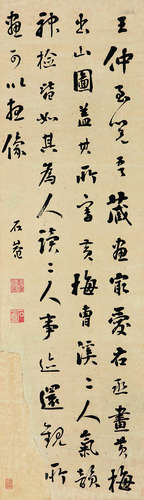 王仲至覽吾藏畫寂愛右丞畫黃梅
出山圖蓋其所寫黃梅曹溪二人氣韻
神檢皆如其為人讀二人事迹還觀所
畫可以想像
石菴